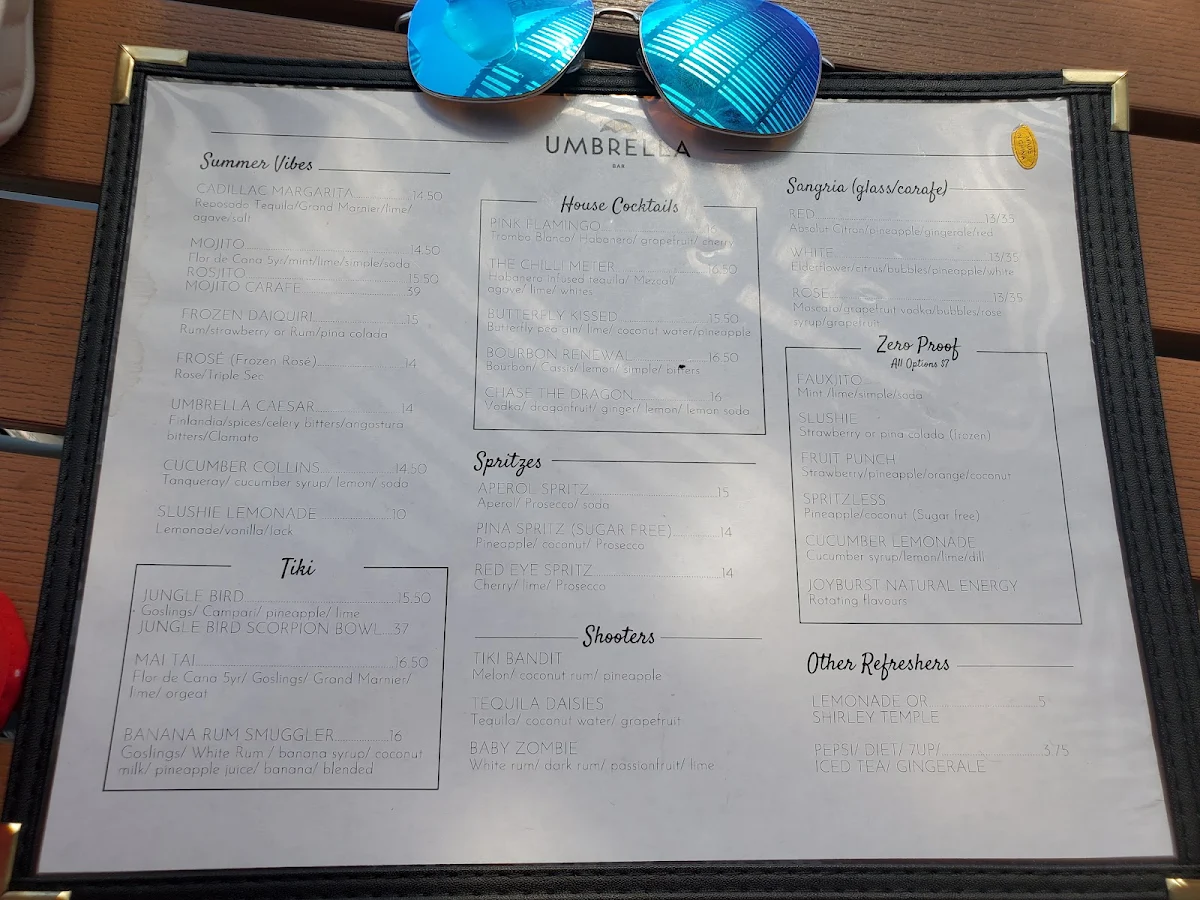 UMBRELLA
BAR
Summer Vibes
CADILLAC MARGARITA 14.50
Reposado Tequila/Grand Marnier/lime/
agave/salt
MOJITO 14.50
Flor de Cana 5yr/mint/lime/simple/soda
ROSJITO 15.50
MOJITO CARAFE 39
FROZEN DAIQUIRI 15
Rum/strawberry or Rum/pina colada
FROSÉ (Frozen Rosé) 14
Rose/Triple Sec
UMBRELLA CAESAR 14
Finlandia/spices/celery bitters/angostura
bitters/Clamato
CUCUMBER COLLINS 14.50
Tanqueray/ cucumber syrup/ lemon/ soda
SLUSHIE LEMONADE 10
Lemonade/vanilla/Jack
Tiki
JUNGLE BIRD 15.50
Goslings/ Campari/ pineapple/ lime
JUNGLE BIRD SCORPION BOWL 37
MAI TAI 16.50
Flor de Cana 5yr/ Goslings/ Grand Marnier/
lime/ orgeat
BANANA RUM SMUGGLER 16
Goslings/ White Rum / banana syrup/ coconut
milk/ pineapple juice/ banana/ blended
House Cocktails
PINK FLAMINGO
Tromba Blanco/ Habanero/ grapefruit/ cherry
THE CHILLI METER 16.50
Habanero infused tequila/ Mezcal/
agave/ lime/ whites
BUTTERFLY KISSED 15.50
Butterfly pea gin/ lime/ coconut water/pineapple
BOURBON RENEWAL 16.50
Bourbon/ Cassis/ lemon/ simple/ bitters
CHASE THE DRAGON 16
Vodka/ dragonfruit/ ginger/ lemon/ lemon soda
Spritzes
APEROL SPRITZ 15
Aperol/ Prosecco/ soda
PINA SPRITZ (SUGAR FREE) 14
Pineapple/ coconut/ Prosecco
RED EYE SPRITZ 14
Cherry/ lime/ Prosecco
Shooters
TIKI BANDIT
Melon/ coconut rum/ pineapple
TEQUILA DAISIES
Tequila/ coconut water/ grapefruit
BABY ZOMBIE
White rum/ dark rum/ passionfruit/ lime
Sangria (glass/carafe)
RED 13/35
Absolut Citron/pineapple/gingerale/red
WHITE 13/35
Elderflower/citrus/bubbles/pineapple/white
ROSE 13/35
Moscato/grapefruit vodka/bubbles/rose
syrup/grapefruit
Zero Proof
All Options $7
FAUXJITO
Mint /lime/simple/soda
SLUSHIE
Strawberry or pina colada (frozen)
FRUIT PUNCH
Strawberry/pineapple/orange/coconut
SPRITZLESS
Pineapple/coconut (Sugar free)
CUCUMBER LEMONADE
Cucumber syrup/lemon/lime/dill
JOYBURST NATURAL ENERGY
Rotating flavours
Other Refreshers
LEMONADE OR 5
SHIRLEY TEMPLE
PEPSI/ DIET/ 7UP/ 3.75
ICED TEA/ GINGERALE